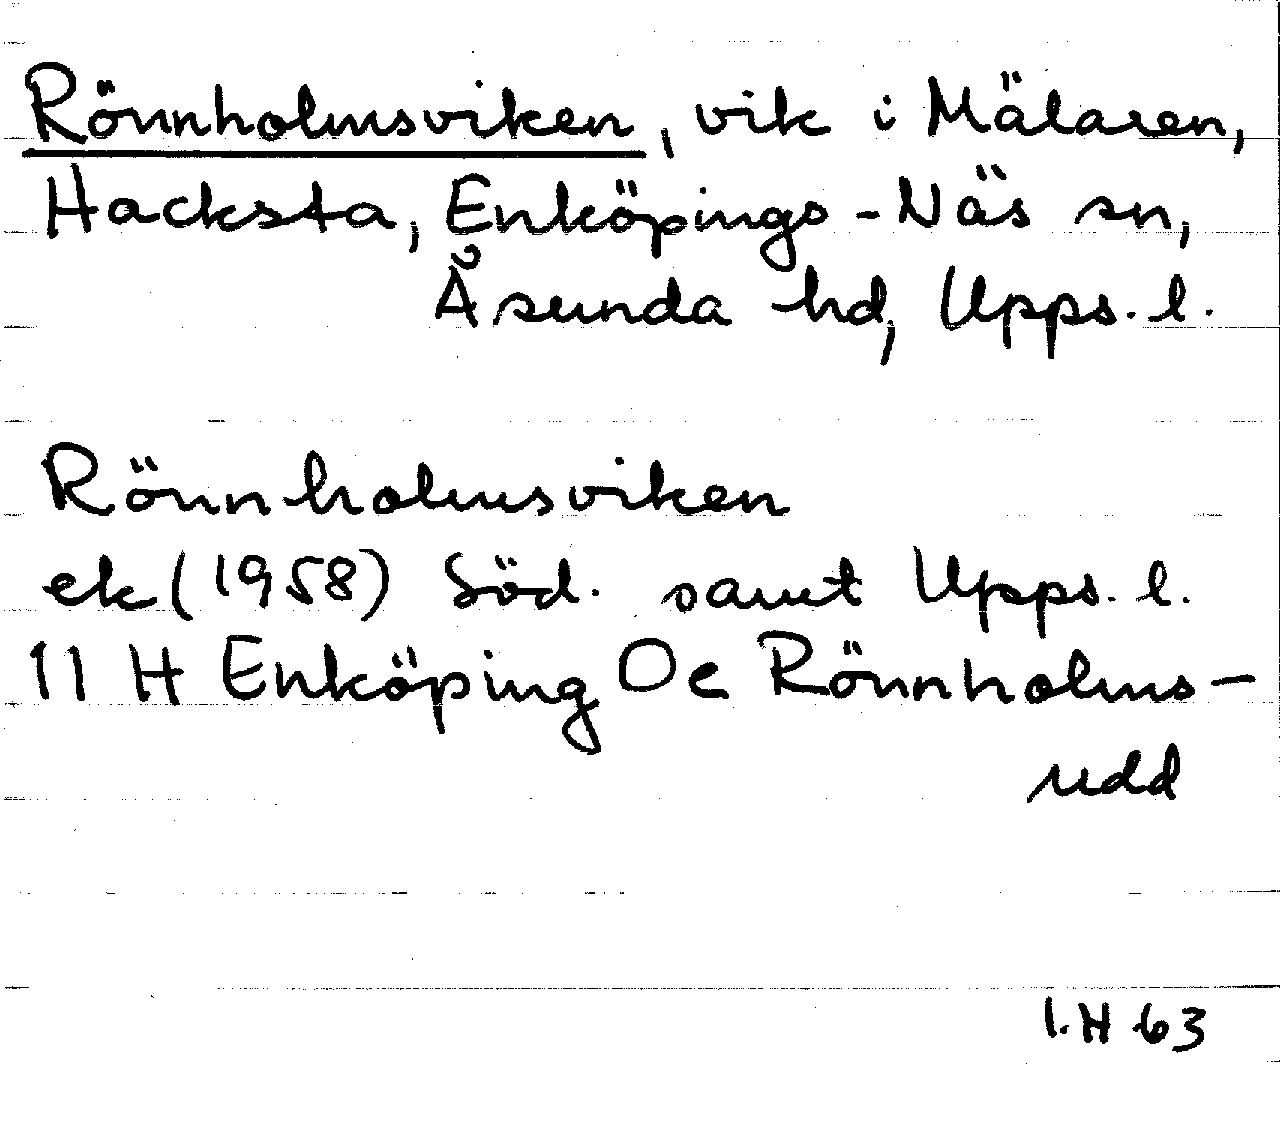 Rönnholmsviken, vik i Mälaren,
Hacksta, Enköpings-Näs sn,
Åsunda hd, Upps. l.
Rönnholmsviken
ek (1958) Söd. samt Upps. l.
11 H Enköping Oe Rönnholms-
udd
I.H 63